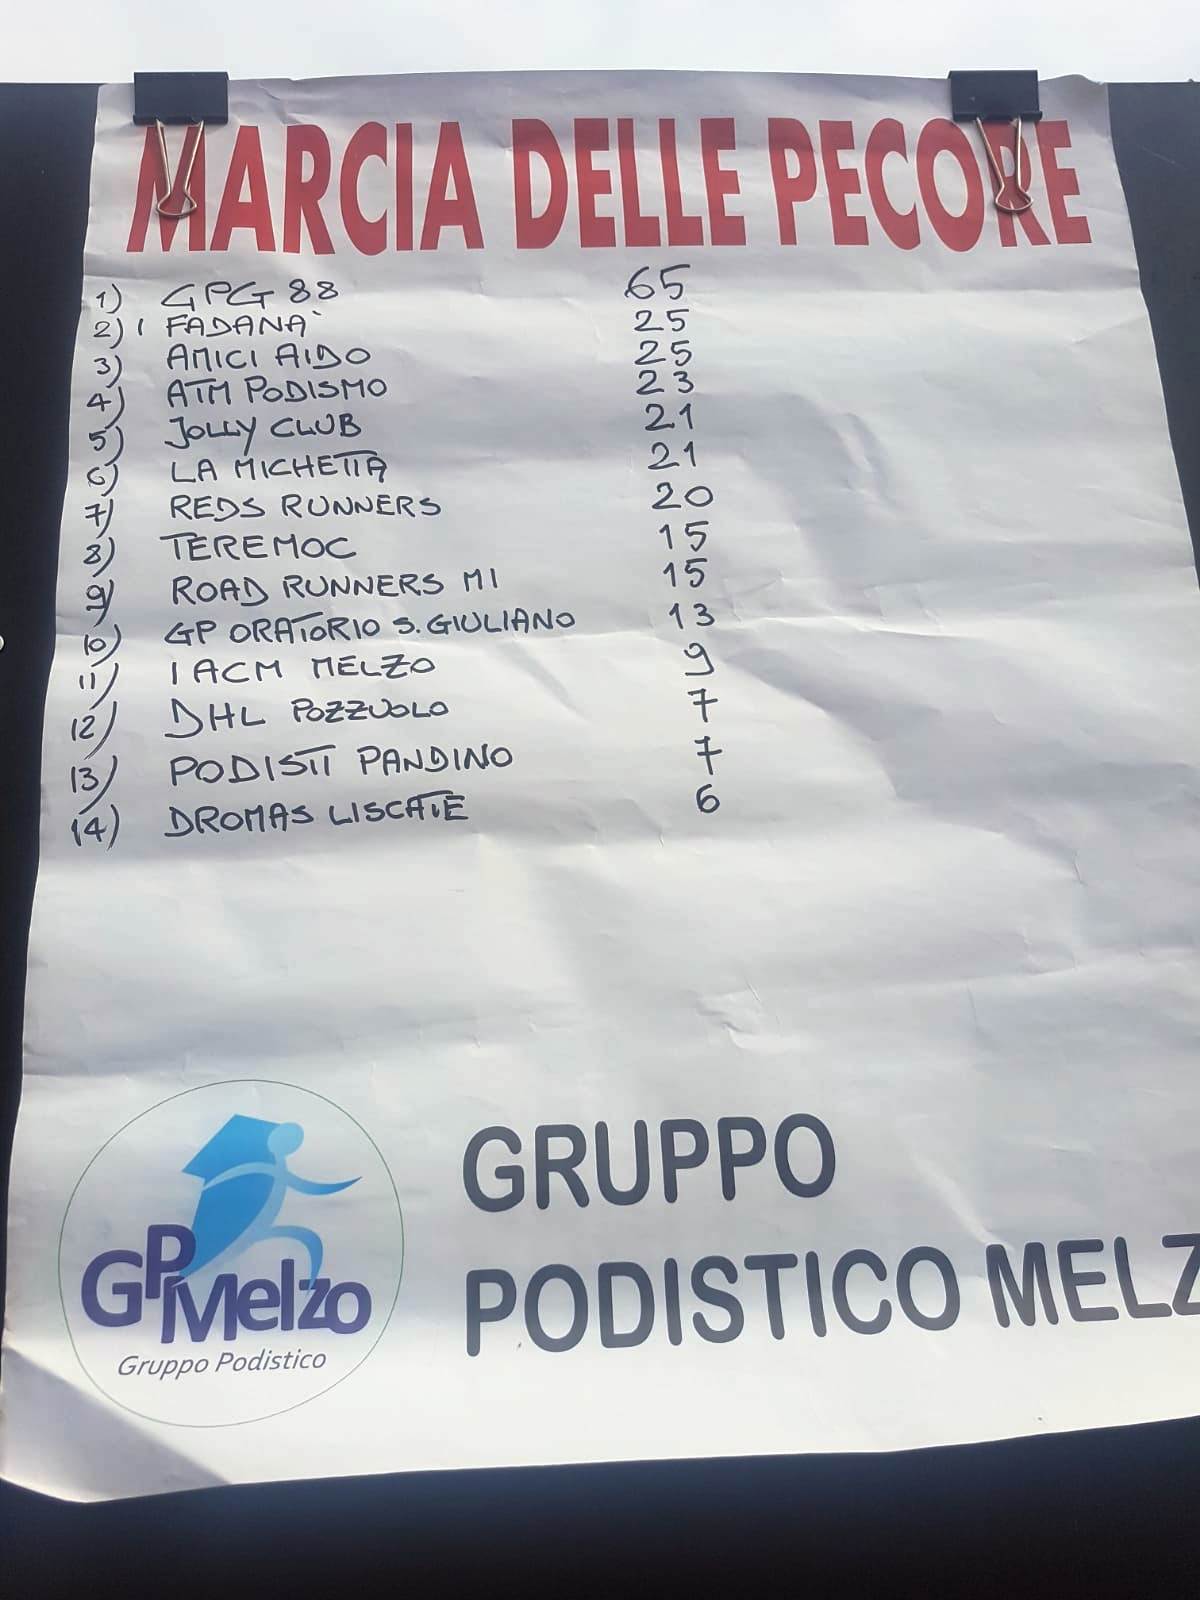 MARCIA DELLE PECORE
1) GPG 88 65
2) I FADANA` 25
3) AMICI AIDO 25
4) ATM PODISMO 23
5) JOLLY CLUB 21
6) LA MICHETTA 21
7) REDS RUNNERS 20
8) TEREMOC 15
9) ROAD RUNNERS MI 15
10) GP ORATORIO S. GIULIANO 13
11) I ACM MELZO 9
12) DHL POZZUOLO 7
13) PODISTI PANDINO 7
14) DROMAS LISCATE 6
GRUPPO
PODISTICO MELZ
GPMelzo
Gruppo Podistico